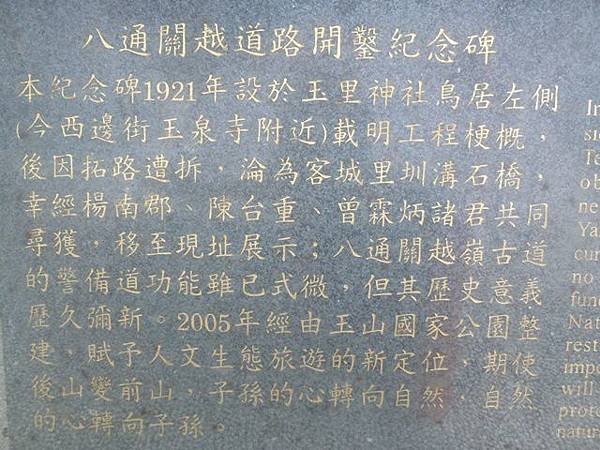 八通關越道路開鑿紀念碑
本紀念碑1921年設於玉里神社鳥居左側
(今西邊街玉泉寺附近)載明工程梗概，
後因拓路遭拆，淪為客城里圳溝石橋，
幸經楊南郡、陳台重、曾霖炳諸君共同
尋獲，移至現址展示；八通關越嶺古道
的警備道功能雖已式微，但其歷史意義
歷久彌新。2005年經由玉山國家公園整
建，賦予人文生態旅遊的新定位，期使
後山變前山，子孫的心轉向自然，自然
的心轉向子孫。
In
Te
ob
ne
Ya
cur
no
fun
Nat
rest
impo
will
prote
natur